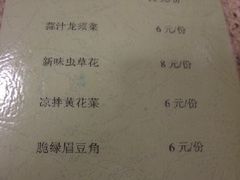 元/份
蒜汁龙须菜 6 元/份
新味虫草花 8 元/份
凉拌黄花菜 6 元/份
脆绿眉豆角 6 元/份